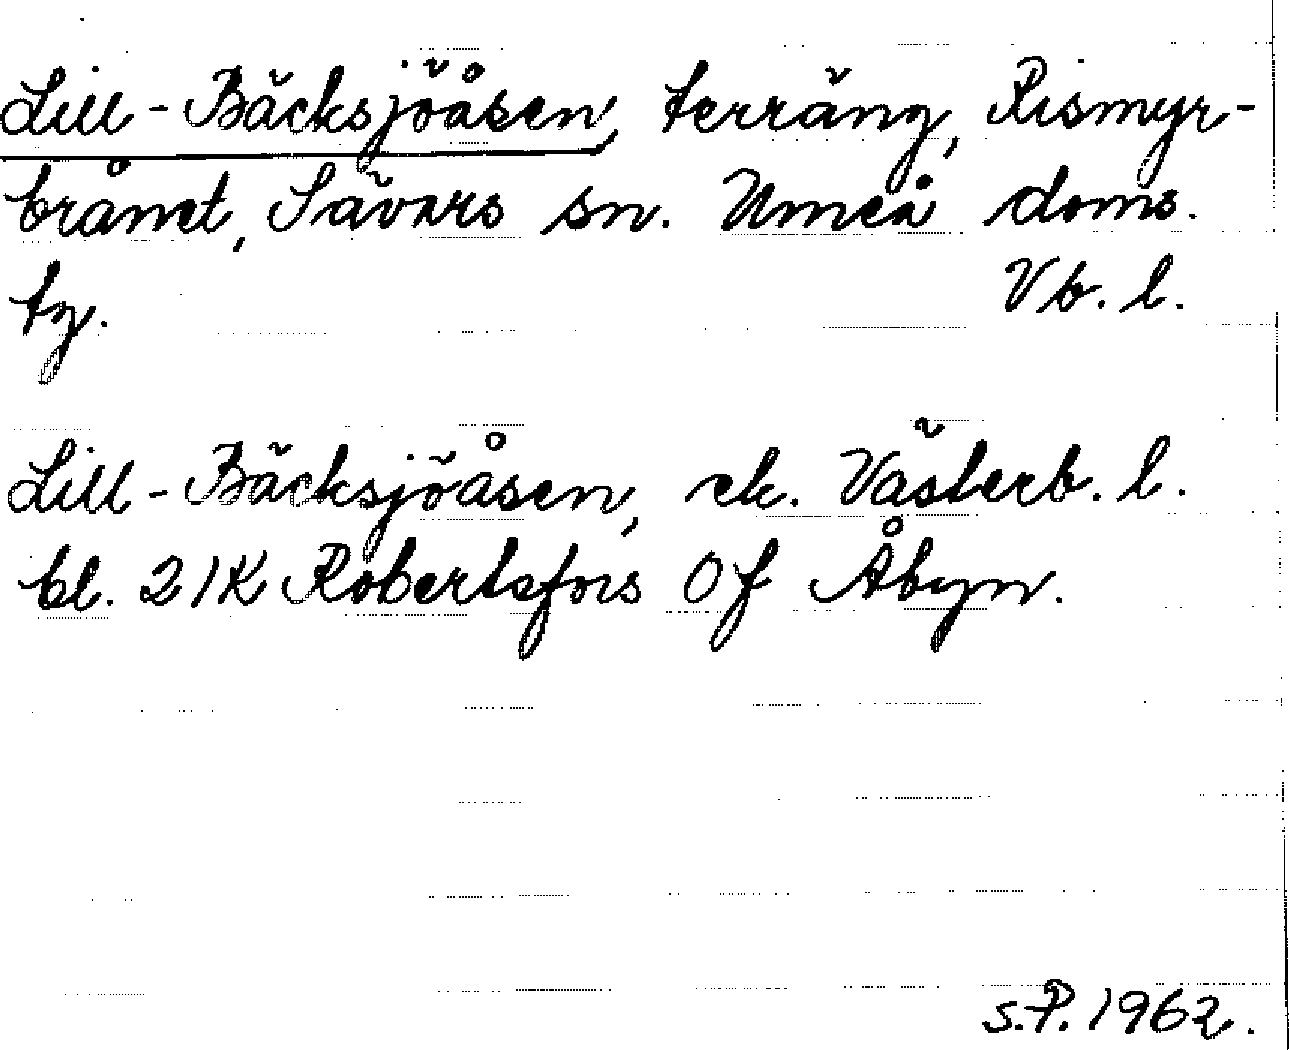 Lill-Bäcksjöåsen, terräng, Rismyr-
brånet, Sävars sn. Umeå doms.
tg. Vb. l.
Lill-Bäcksjöåsen, ek. Västerb. l.
bl. 21K Robertsfors Of Åbyn.
S.P. 1962.